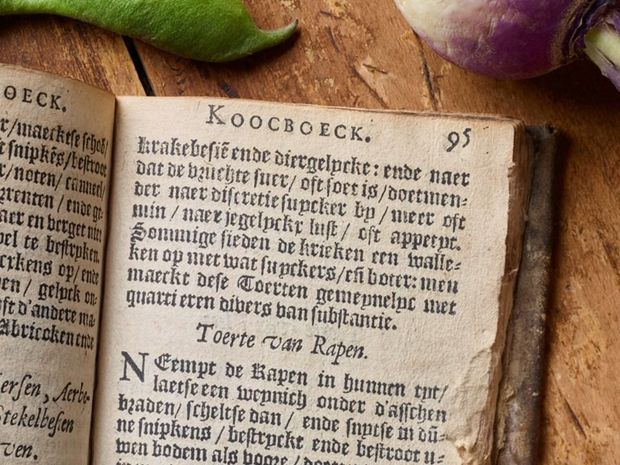 OECK.
er/ maecktse schoō/
t snipkēs/bestroot
r/ noten/ canneel/
rrenten/ ende ge-
er en verget mir
pel te bestryken
rkens op/ ende
en/ gelyck on-
ft d'andere ma-
Abricoken ende
ersen, Aerbe-
tekelbesien
ven.
KOOCBOECK. 95
krakebesiē ende diergelycke: ende naer
dat de vruchte suer/ oft soet is/ doetmen-
der naer discretie suycker by/ meer oft
min/ naer jegelyckx lust/ oft appetyt.
Sommige sieden de krieken een walle-
ken op met wat suyckers/ eñ boter: men
maeckt dese Toerten gemeynelyc met
quarti eren divers van substantie.
Toerte van Rapen.
NEempt de Rapen in hunnen tyt/
laetse een weynich onder d'asschen
braden/ scheltse dan/ ende snytse in dū-
ne snipkens/ bestryckt ende bestroot u-
wen bodem als voore/